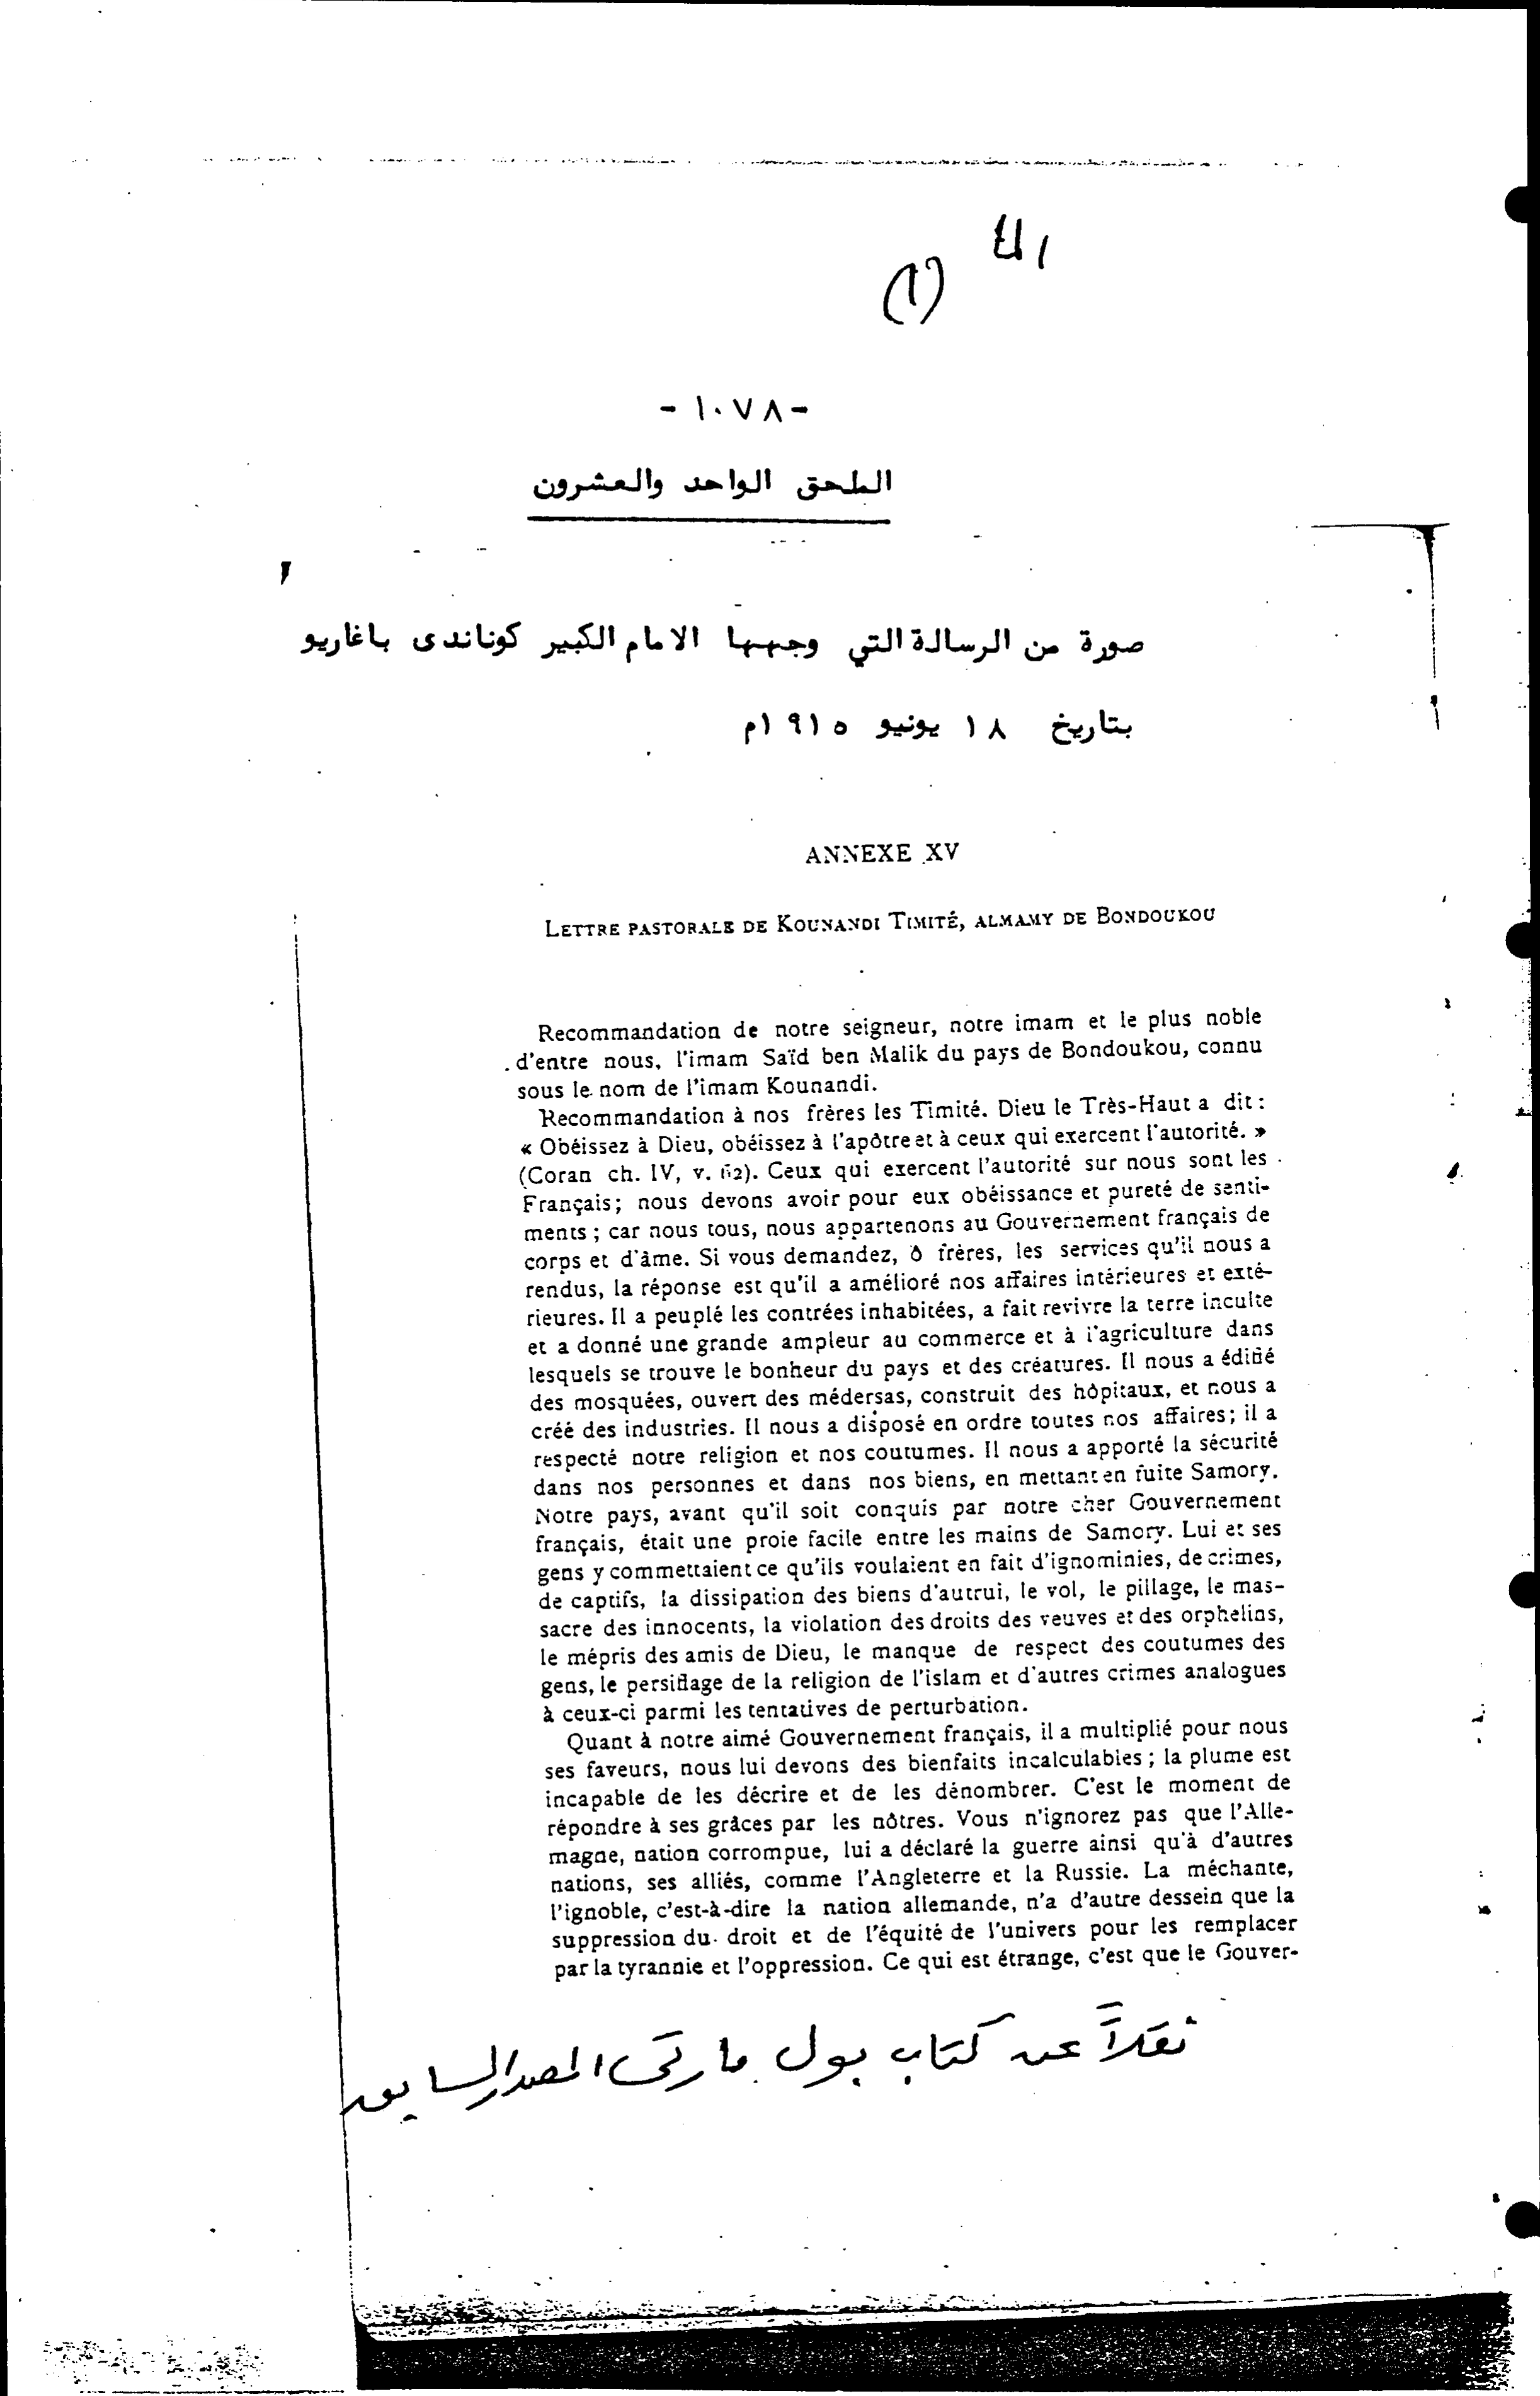 (١)
- ١٠٧٨ -
الملحق الواحد والعشرون
صورة من الرسالة التي وجهها الامام الكبير كوناندى باغاريو
بتاريخ ١٨ يونيو ١٩١٥م
ANNEXE XV
LETTRE PASTORALE DE KOUNANDI TIMITÉ, ALMAMY DE BONDOUKOU
Recommandation de notre seigneur, notre imam et le plus noble
d'entre nous, l'imam Saïd ben Malik du pays de Bondoukou, connu
sous le nom de l'imam Kounandi.
Recommandation à nos frères les Timité. Dieu le Très-Haut a dit :
« Obéissez à Dieu, obéissez à l'apôtre et à ceux qui exercent l'autorité. »
(Coran ch. IV, v. 62). Ceux qui exercent l'autorité sur nous sont les
Français; nous devons avoir pour eux obéissance et pureté de senti-
ments ; car nous tous, nous appartenons au Gouvernement français de
corps et d'âme. Si vous demandez, ô frères, les services qu'il nous a
rendus, la réponse est qu'il a amélioré nos affaires intérieures et exté-
rieures. Il a peuplé les contrées inhabitées, a fait revivre la terre inculte
et a donné une grande ampleur au commerce et à l'agriculture dans
lesquels se trouve le bonheur du pays et des créatures. Il nous a édifié
des mosquées, ouvert des médersas, construit des hôpitaux, et nous a
créé des industries. Il nous a disposé en ordre toutes nos affaires; il a
respecté notre religion et nos coutumes. Il nous a apporté la sécurité
dans nos personnes et dans nos biens, en mettant en fuite Samory.
Notre pays, avant qu'il soit conquis par notre cher Gouvernement
français, était une proie facile entre les mains de Samory. Lui et ses
gens y commettaient ce qu'ils voulaient en fait d'ignominies, de crimes,
de captifs, la dissipation des biens d'autrui, le vol, le pillage, le mas-
sacre des innocents, la violation des droits des veuves et des orphelins,
le mépris des amis de Dieu, le manque de respect des coutumes des
gens, le persiflage de la religion de l'islam et d'autres crimes analogues
à ceux-ci parmi les tentatives de perturbation.
Quant à notre aimé Gouvernement français, il a multiplié pour nous
ses faveurs, nous lui devons des bienfaits incalculables ; la plume est
incapable de les décrire et de les dénombrer. C'est le moment de
répondre à ses grâces par les nôtres. Vous n'ignorez pas que l'Alle-
magne, nation corrompue, lui a déclaré la guerre ainsi qu'à d'autres
nations, ses alliés, comme l'Angleterre et la Russie. La méchante,
l'ignoble, c'est-à-dire la nation allemande, n'a d'autre dessein que la
suppression du droit et de l'équité de l'univers pour les remplacer
par la tyrannie et l'oppression. Ce qui est étrange, c'est que le Gouver-
نقلاً عن كتاب بول مارتى المصدر السابق